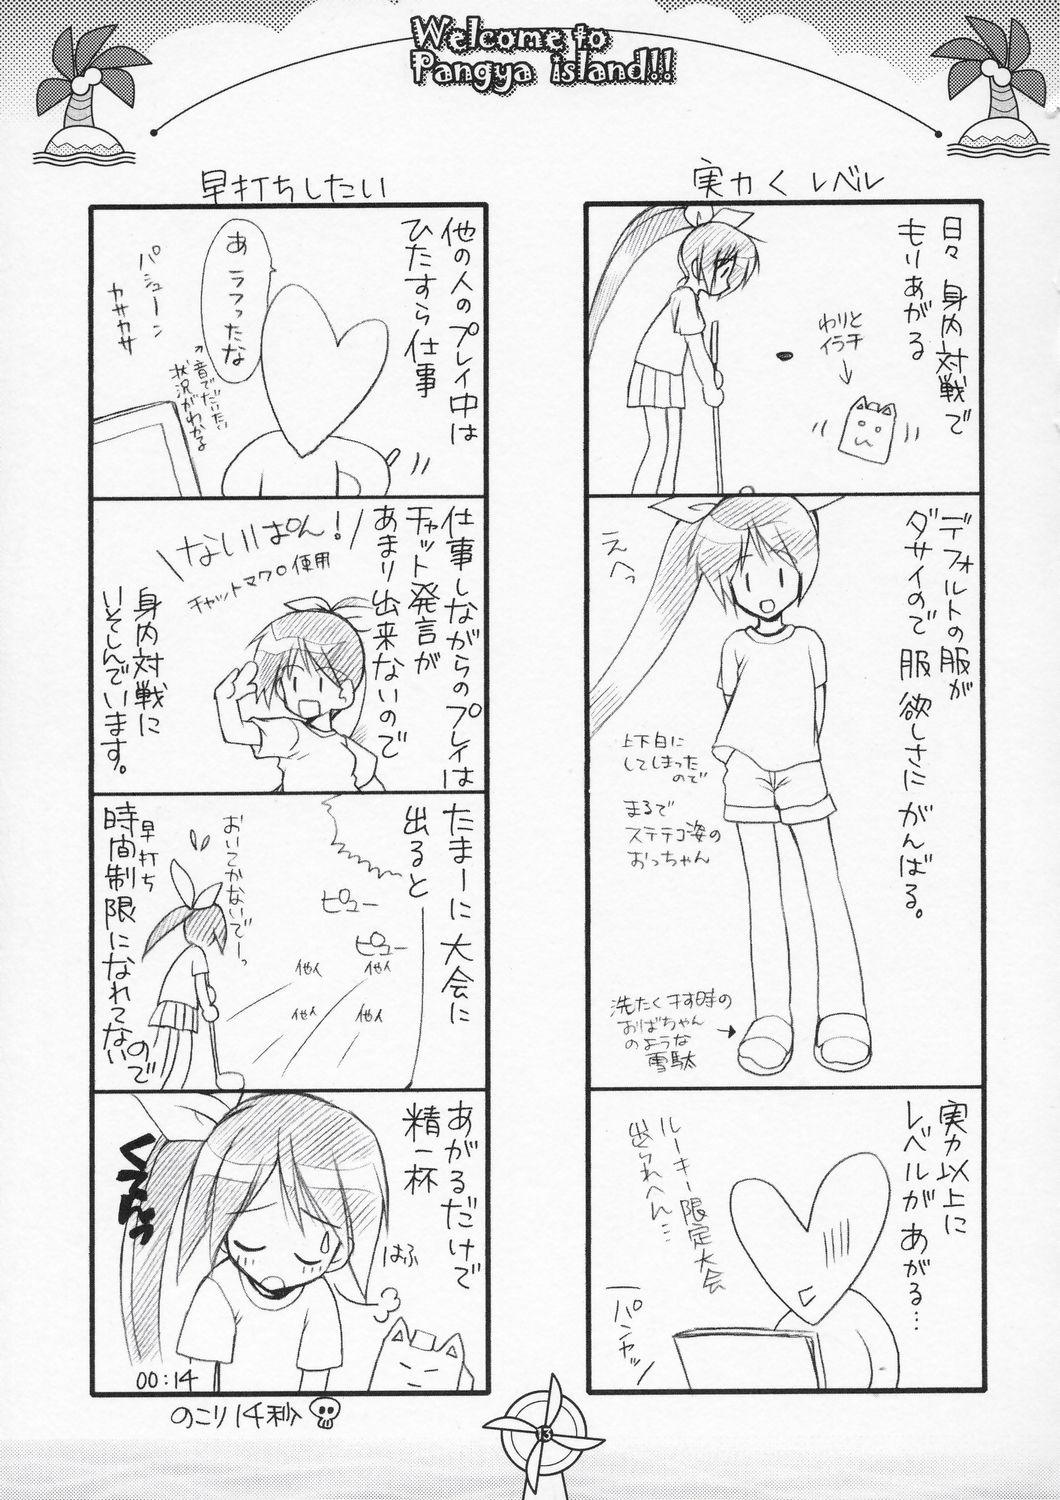 Welcome to
Pangya island!!
実力くレベル
日々身内対戦で
もりあがる
わりと
イラチ
デフォルトの服が
ダサイので服欲しさにがんばる。
えへっ
上下白に
してしまった
ので
まるで
ステテコ姿の
おっちゃん
洗たく干す時の
おばちゃん
のような
雪駄
実力以上に
レベルがあがる…
ルーキー限定大会
出られへん…
パンヤッ
早打ちしたい
他の人のプレイ中は
ひたすら仕事
あ ラフったな
パシューン
カサカサ
↑音でだいたい
状況がわかる
仕事しながらのプレイは
チャット発言が
あまり出来ないので
ないぱん!
チャットマクロ使用
身内対戦に
いそしんでいます。
たまーに大会に
出ると
ピュー
ピュー
他人
他人
他人
他人
おいてかないでーっ
早打ち
時間制限になれてないので
あがるだけで
精一杯
はふ
00:14
のこり14秒
13